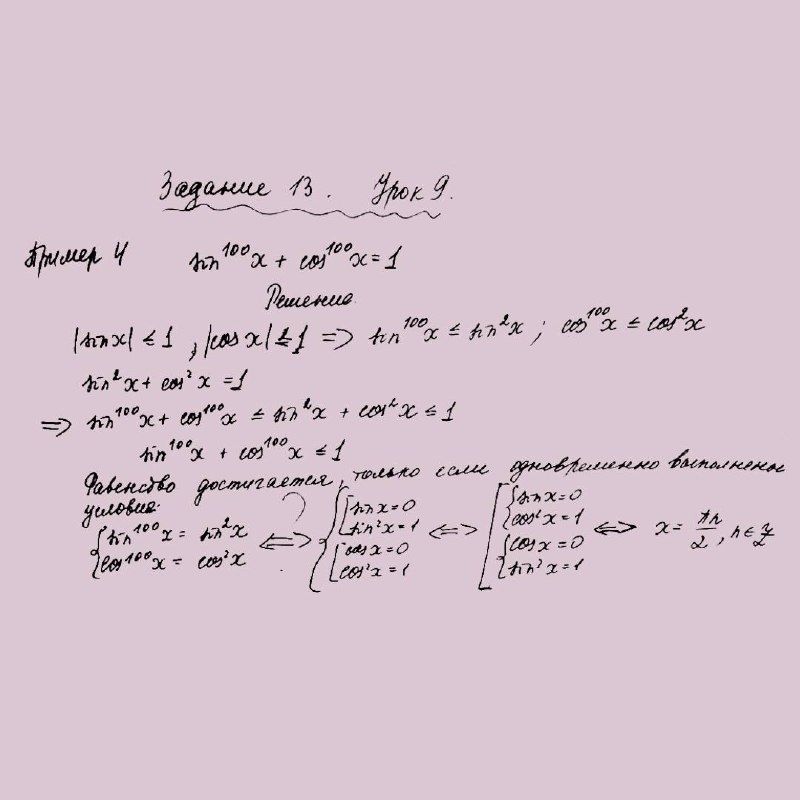 Задание 13. Урок 9.
Пример 4 sin¹⁰⁰x + cos¹⁰⁰x = 1
Решение.
|sinx| ≤ 1, |cosx| ≤ 1 => sin¹⁰⁰x ≤ sin²x; cos¹⁰⁰x ≤ cos²x
sin²x + cos²x = 1
=> sin¹⁰⁰x + cos¹⁰⁰x ≤ sin²x + cos²x ≤ 1
sin¹⁰⁰x + cos¹⁰⁰x ≤ 1
Равенство достигается, только если одновременно выполнены
условия.
{ sin¹⁰⁰x = sin²x; cos¹⁰⁰x = cos²x <=> { [ sinx = 0; sin²x = 1; [ cosx = 0; cos²x = 1 <=> [ { sinx = 0; cos²x = 1; { cosx = 0; sin²x = 1 <=> x = πn/2, n ∈ Z